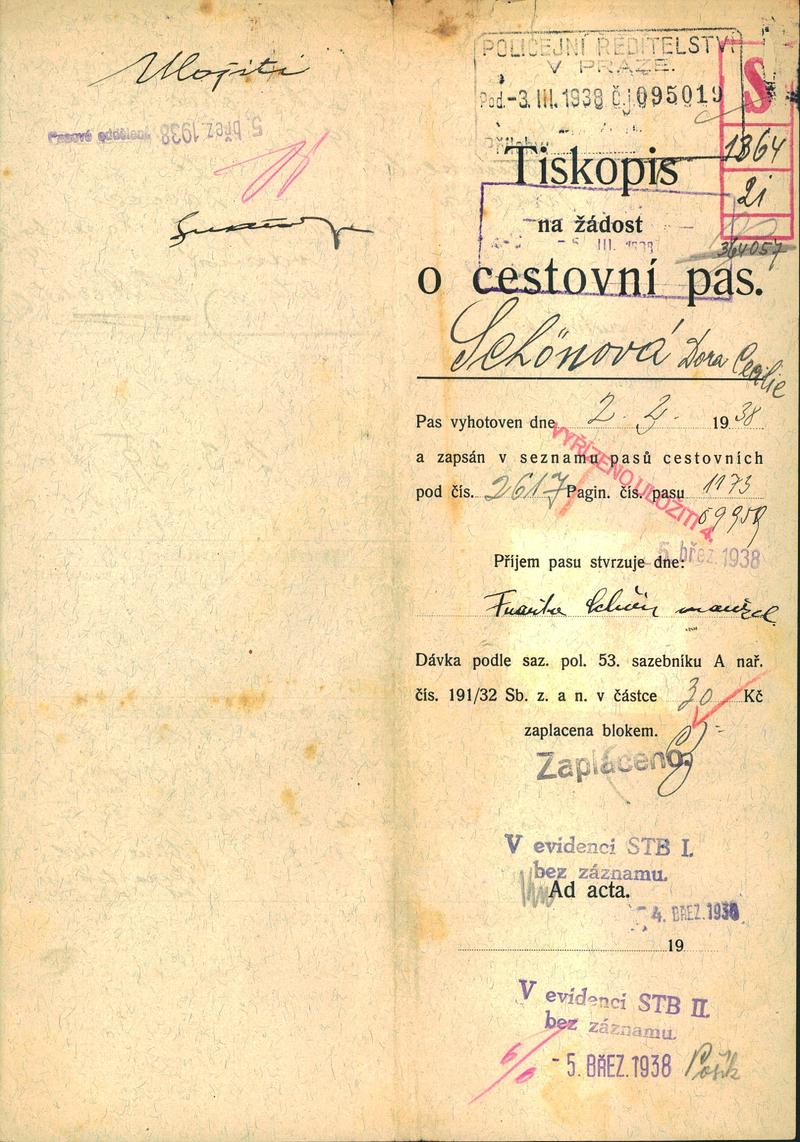 Uložiti
Pasové oddělení 5. břez 1938
POLICEJNÍ ŘEDITELSTVÍ
V PRAZE.
Pod. -3. III. 1938 Čj. 095019
Přílohy
S
1864
21
364057
Tiskopis
na žádost
o cestovní pas.
Schönová Dora Cecilie
Pas vyhotoven dne 2. 3. 1938
a zapsán v seznamu pasů cestovních
pod čís. 2617 Pagin. čís. pasu 1173
69959
VYŘÍZENO ULOŽITI 4.
5. břez. 1938
Příjem pasu stvrzuje dne:
Schön manžel
Dávka podle saz. pol. 53. sazebníku A nař.
čís. 191/32 Sb. z. a n. v částce 30 Kč
zaplacena blokem.
Zaplaceno.
V evidenci STB I.
bez záznamu.
Ad acta.
4. BŘEZ. 1938
19
V evidenci STB II.
bez záznamu.
6/6 - 5. BŘEZ. 1938